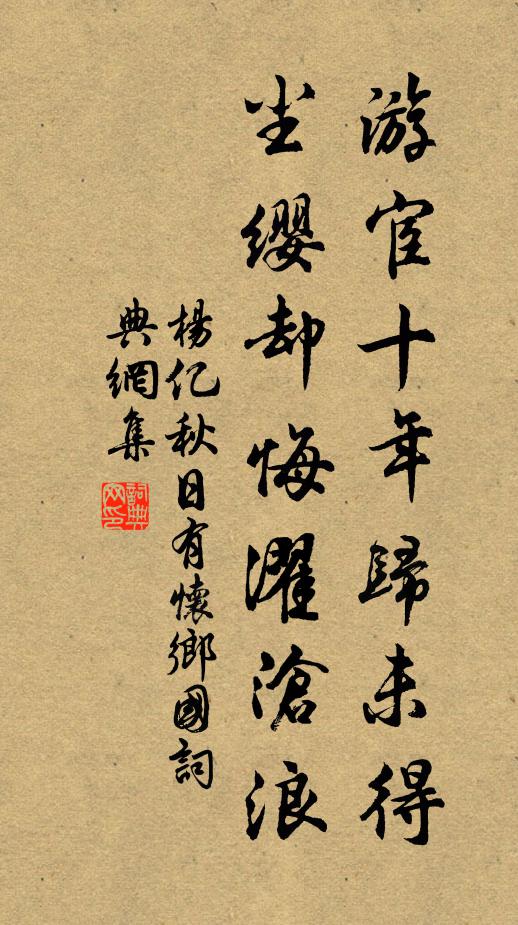 游宦十年歸未得
尘纓却悔濯滄浪
楊亿秋日有懷鄉國詞
典網集
詞典
网印